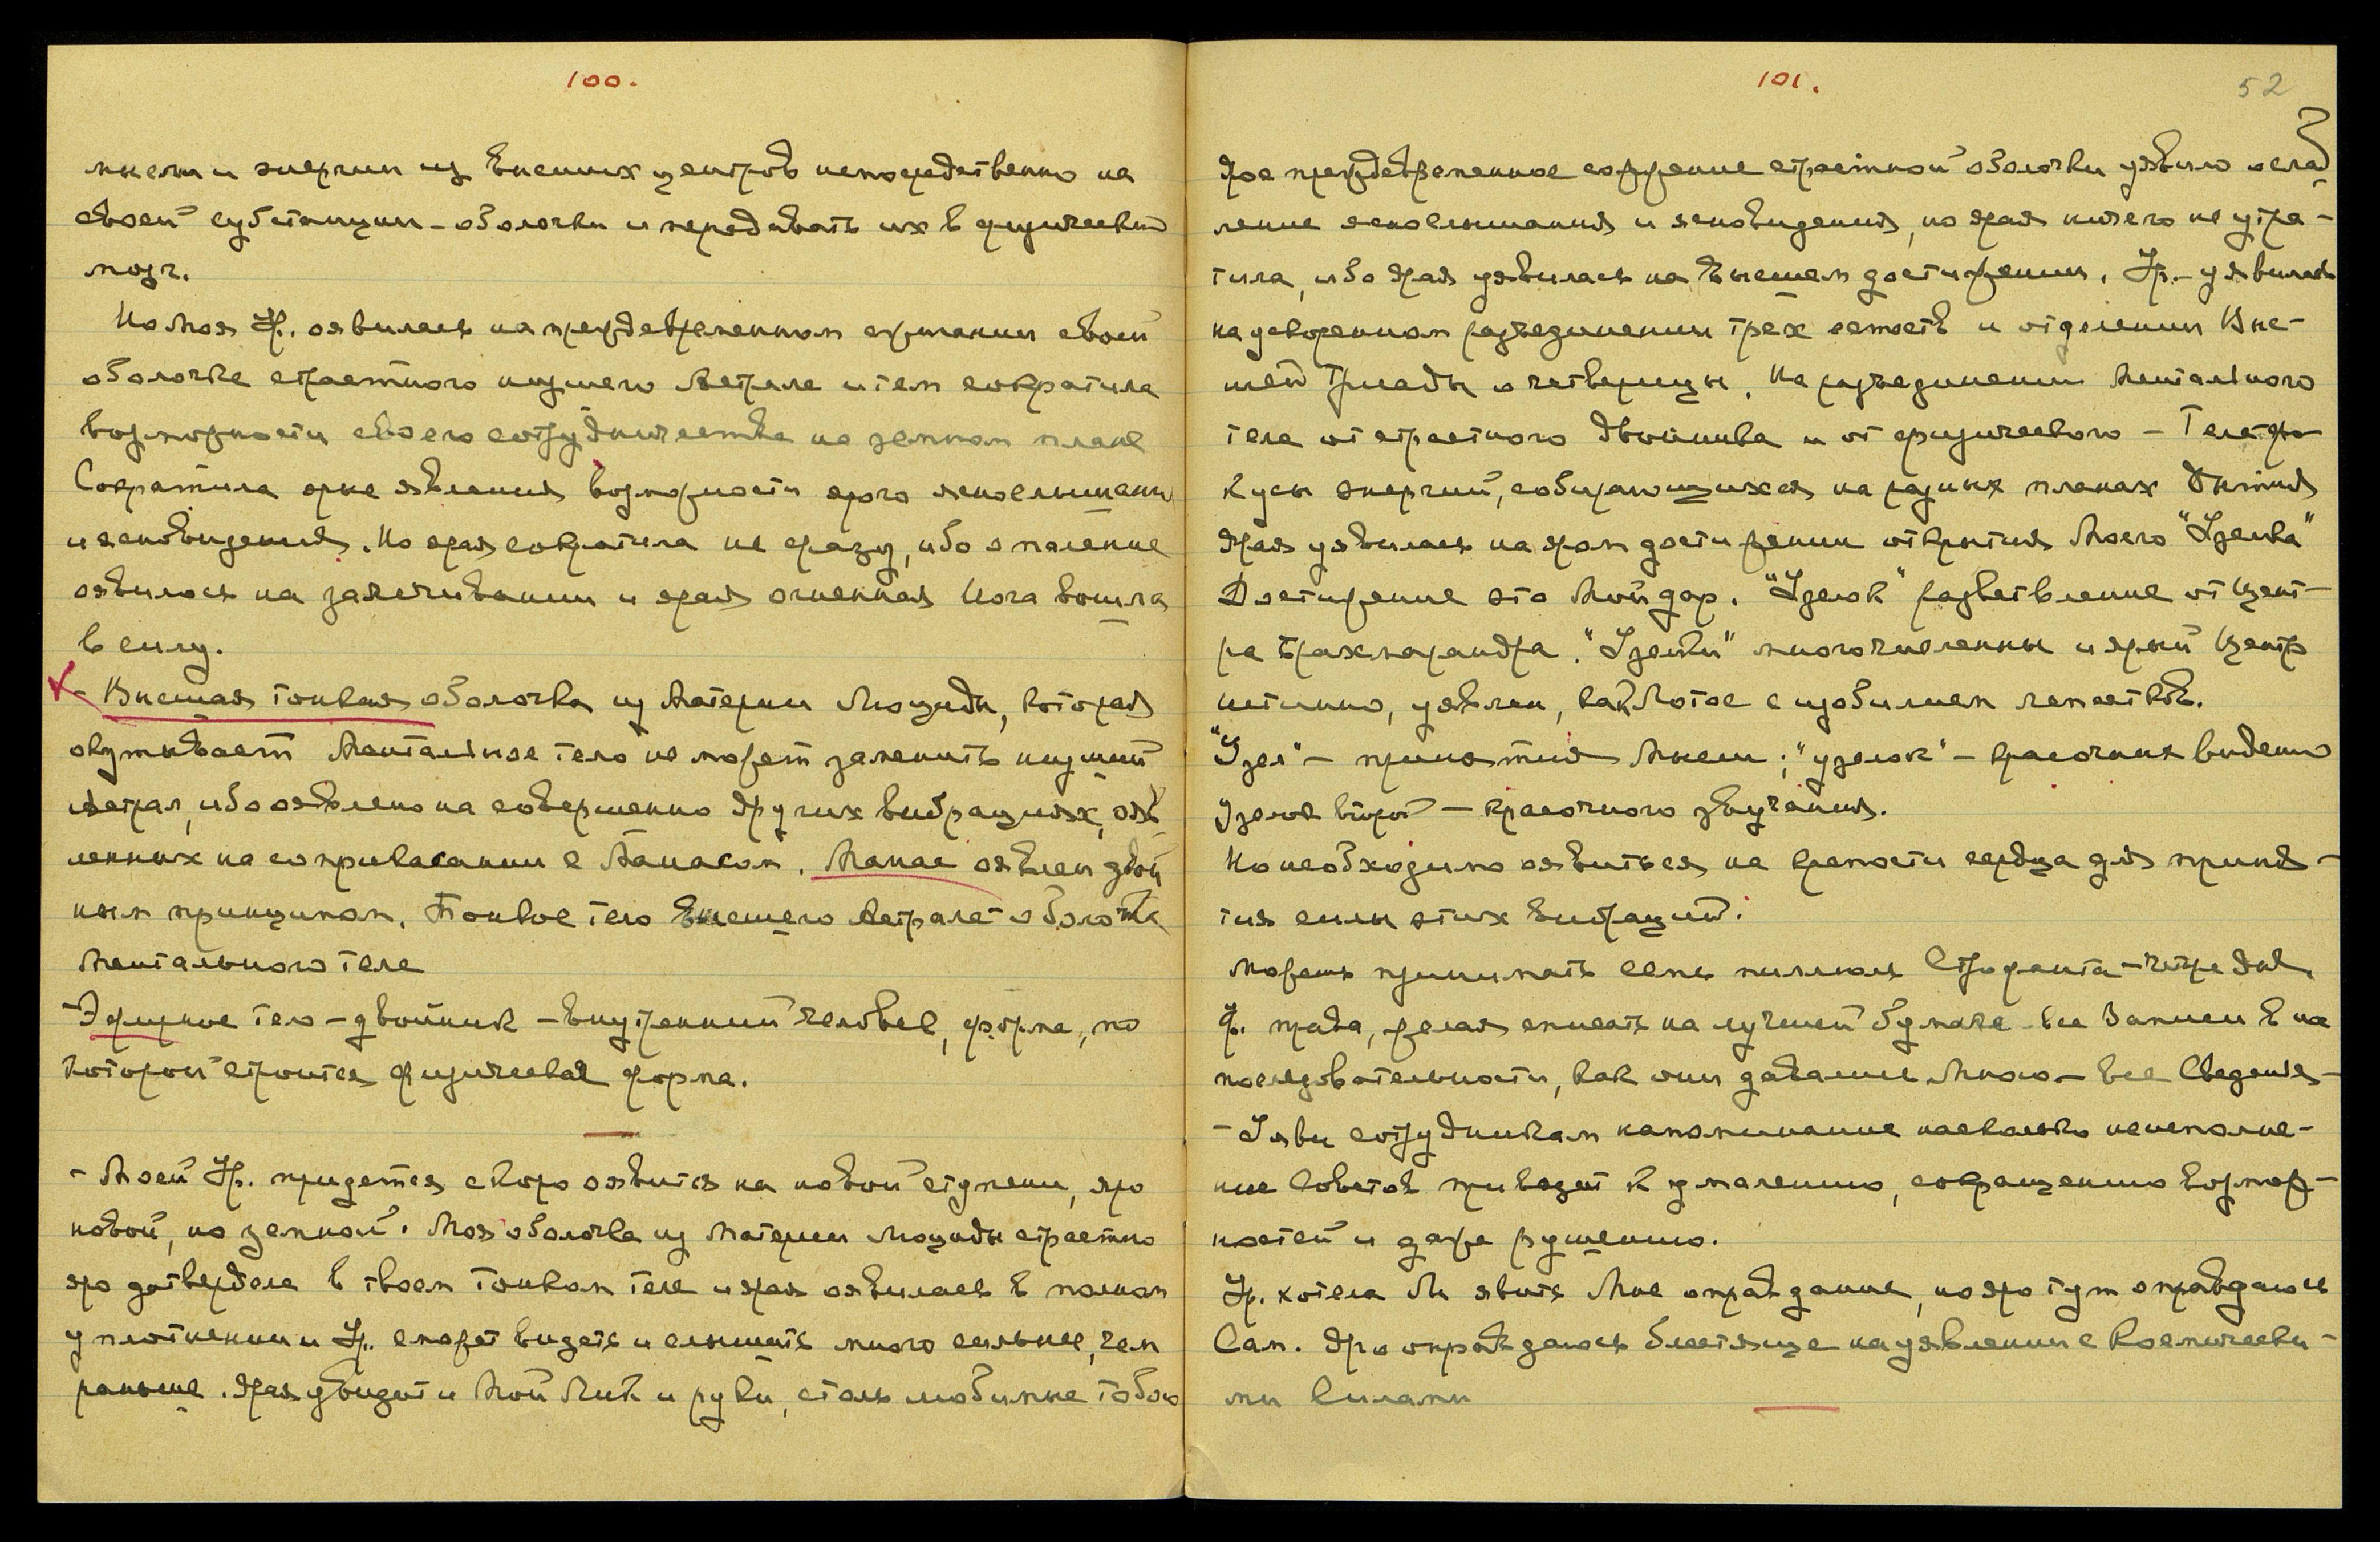 100.
мысли и энергии из Высших центров непосредственно на
своей субстанции - оболочки и передавать их в физический
мозг.
Но Моя Ур. оявилась на преждевременном сжигании своей
оболочке страстного низшего Астрала и тем сократила
возможности своего сотрудничества на земном плане
Сократила ярые явления возможности ярого яснослышания
и ясновидения. Но ярая сократила не сразу, ибо опаление
оявилось на залечивании и ярая огненная Йога вошла
в силу.
- Высшая тонкая оболочка из Материи Люциды, которая
окутывает Ментальное тело не может заменить низший
Астрал, ибо оявлено на совершенно других вибрациях, ояв
ленных на соприкасании с Манасом. Манас оявлен двой
ным принципом. Тонкое тело Высшего Астрала - оболочка
Ментального тела
- Эфирное тело - двойник - внутренний человек, форма, по
которой строится физическая форма.
- Моей Ур. придется скоро оявиться на новой ступени, яро
новой, но земной. Моя оболочка из Материи Люциды страстно
яро затвердела в твоем Тонком теле и ярая оявилась в полном
уплотнении и Ур. сможет видеть и слышать много сильнее, чем
раньше. Ярая увидит и Мой Лик и руки, столь любимые тобою
101.
52
Ярое преждевременное сожжение страстной оболочки уявило ослаб
ление яснослышания и ясновидения, но ярая ничего не утра-
тила, ибо ярая уявилась на высшем достижении. Ур. - уявилась
на ускоренном разъединении трех естеств и отделении Выс-
шей Триады от четверицы. На разъединении Ментального
тела от страстного двойника и от физического - Тела фо
кусы энергий, собирающихся на разных планах Бытия
Ярая уявилась на яром достижении открытия Моего "Узелка"
Достижение это Мой дар. "Узелок" разветвление от Цент-
ра Брахмарандра. "Узелки" многочисленны и ярый Центр
истинно, уявлен, как Лотос с изобилием лепестков.
"Узел" - принятия Мысли; "узелок" - красочных видений
Узелок второй - красочного звучания.
Но необходимо оявиться на крепости сердца для приня-
тия силы этих вибраций.
Можешь принимать семь пилюль Строфанта - четыре дня,
Ур. права, желая списать на лучшей бумаге все Записи в их
последовательности, как они давались Мною - все Сведения -
- Уяви сотрудникам напоминание насколько неисполне-
ние Советов приводит к умалению, сокращению возмож-
ностей и даже рушению.
Ур. хотела бы явить Мне оправдание, но яро тут оправдалось
Сам. Яро оправдалось блестяще на уявлении с Космически-
ми Силами